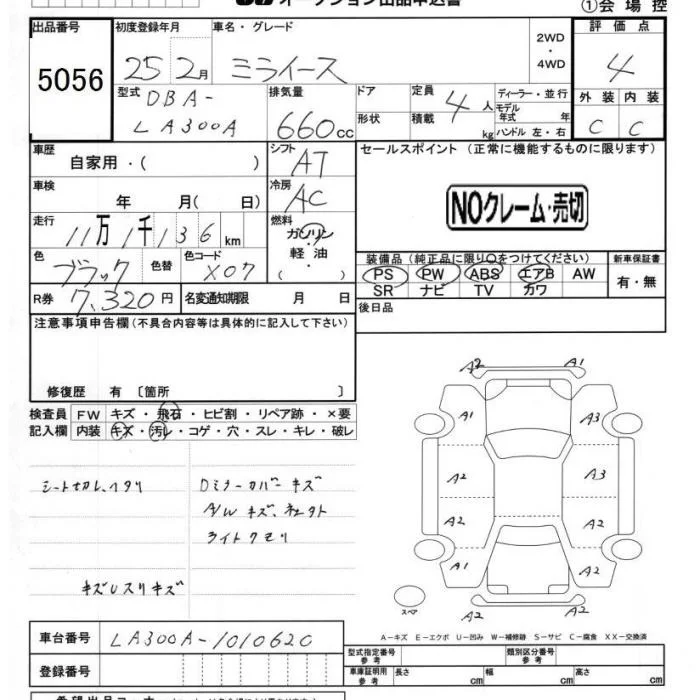 オークション出品申込書
①会場控
出品番号 初度登録年月 車名・グレード 2WD・4WD 評価点
5056 25 2月 ミライース 4
型式 DBA-LA300A 排気量 660cc ドア 形状 定員 4人 積載 kg ディーラー・並行 モデル年式 年 ハンドル 左・右 外装 C 内装 C
車歴 自家用・( ) シフト AT セールスポイント (正常に機能するものに限ります)
車検 年 月( 日) 冷房 AC
NOクレーム・売切
走行 11万1千136km 燃料 ガソリン・軽油・( )
色 ブラック 色替 色コード X07
装備品(純正品に限り○をつけてください) 新車保証書
PS PW ABS エアB AW 有・無
SR ナビ TV カワ
R券 7,320円 名変通知期限 月 日 後日品
注意事項申告欄(不具合内容等は具体的に記入して下さい)
修復歴 有 〔箇所 〕
検査員記入欄 FW キズ・飛石・ヒビ割・リペア跡・×要
内装 キズ・汚レ・コゲ・穴・スレ・キレ・破レ
シート切レ、ヘタリ Dミラーカバーキズ
A/Wキズ、
ライトクモリ
キズUスリキズ
A2 A1
A1 A3
A2 A3
A2 A2
A1 A2
A2 A2
スペア
A-キズ E-エクボ U-凹み W-補修跡 S-サビ C-腐食 XX-交換済
車台番号 LA300A-1010620
型式指定番号 参考 類別区分番号 参考
登録番号 車庫証明用 参考 長さ cm 幅 cm 高さ cm